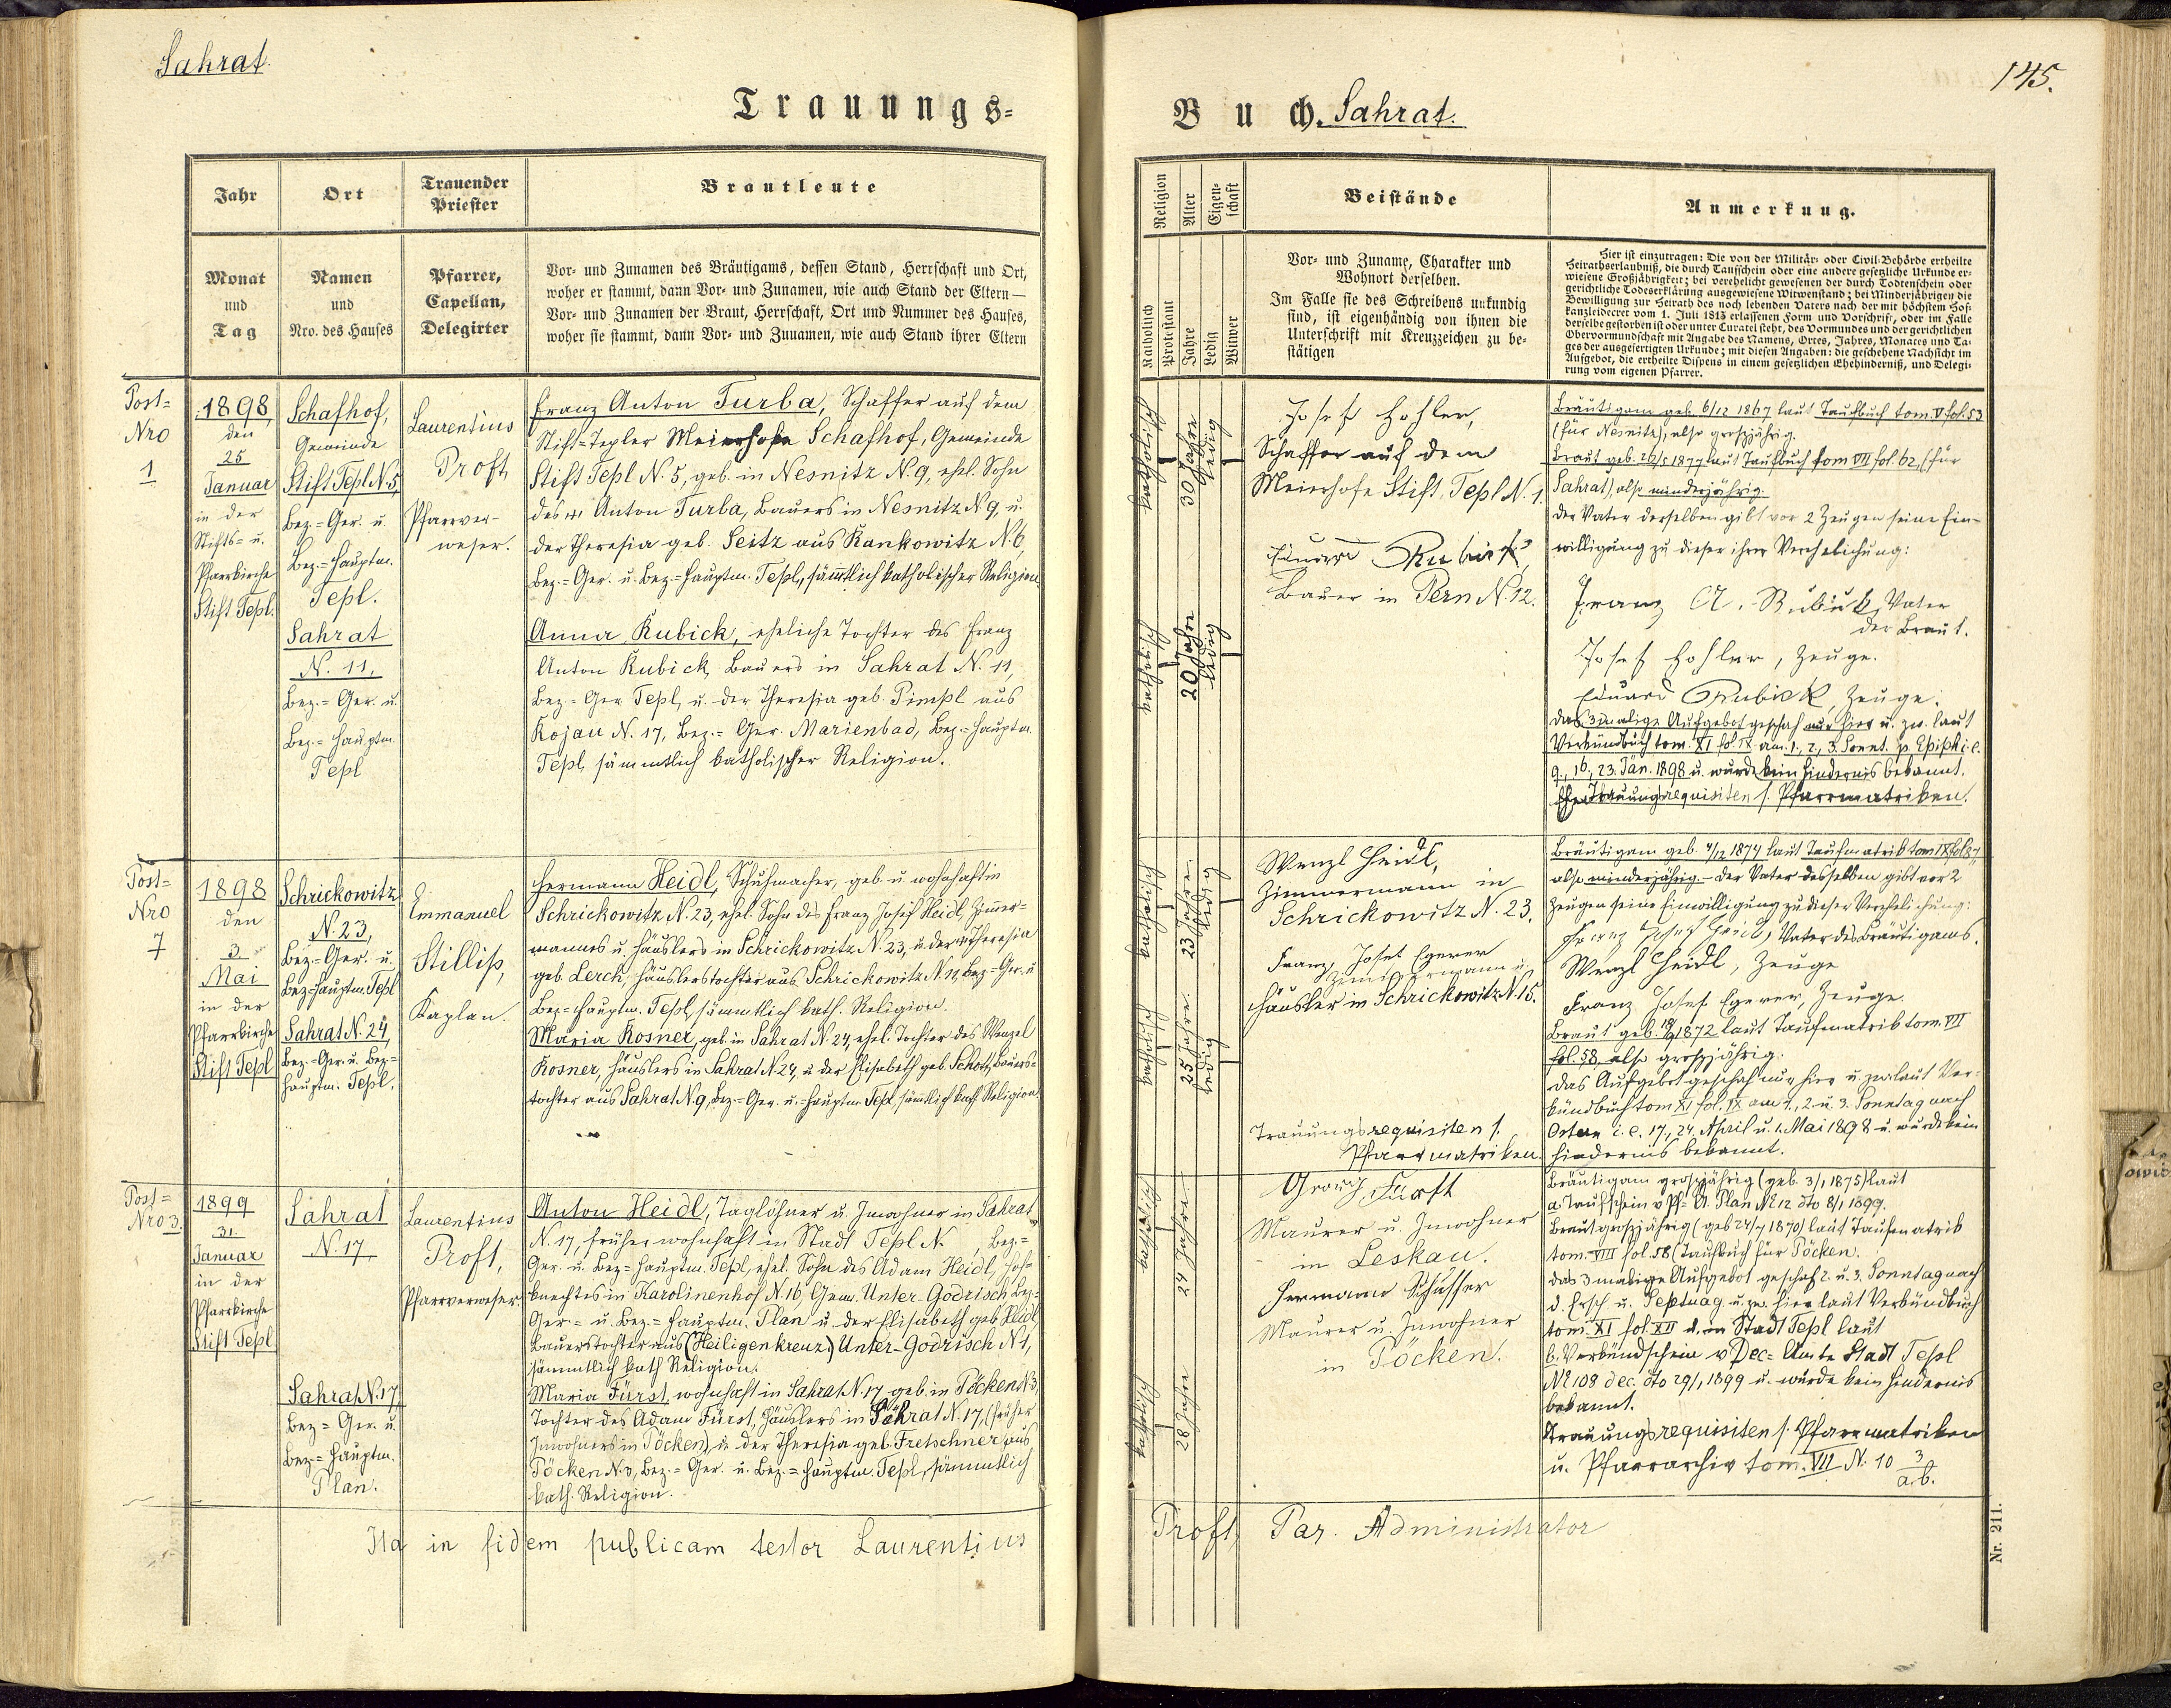 Sahrat.
Trauungs-
Jahr
Ort
Trauender
Priester
Brautleute
Monat
und
Tag
Namen
und
Nro. des Hauses
Pfarrer,
Capellan,
Delegirter
Vor- und Zunamen des Bräutigams, dessen Stand, Herrschaft und Ort,
woher er stammt, dann Vor- und Zunamen, wie auch Stand der Eltern —
Vor- und Zunamen der Braut, Herrschaft, Ort und Nummer des Hauses,
woher sie stammt, dann Vor- und Zunamen, wie auch Stand ihrer Eltern
Post-
Nro
1
1898
den
25
Januar
in der
Stifts- u.
Pfarrkirche
Stift Tepl.
Schafhof,
Gemeinde
Stift Tepl N. 5,
Bez.-Ger. u.
Bez.-Hauptm.
Tepl.
Sahrat
N. 11,
Bez.-Ger. u.
Bez.-Hauptm.
Tepl
Laurentius
Proft,
Pfarrver-
weser.
Franz Anton Turba, Schaffer auf dem
Stift-Tepler Meierhofe Schafhof, Gemeinde
Stift Tepl N. 5, geb. in Nesnitz N. 9, ehel. Sohn
des Anton Turba, Bauers in Nesnitz N 9, u.
der Theresia geb. Seitz aus Rankowitz N. 6,
Bez.-Ger. u. Bez.-Hauptm. Tepl, sämtlich katholischer Religion.
Anna Kubick, eheliche Tochter des Franz
Anton Kubick, Bauers in Sahrat N. 11,
Bez-Ger Tepl, u. der Theresia geb. Pimpl aus
Kojau N. 17, Bez.-Ger. Marienbad, Bez.-Hauptm.
Tepl, sämmtlich katholischer Religion.
Post-
Nro
7
1898
den
3
Mai
in der
Pfarrkirche
Stift Tepl
Schrickowitz
N. 23,
Bez-Ger. u.
Bez-Hauptm. Tepl
Sahrat N. 24,
Bez.-Ger. u. Bez-
Hauptm. Tepl.
Emmanuel
Stilliß,
Kaplan.
Hermann Heidl, Schuhmacher, geb. u. wohnhaft in
Schrickowitz N. 23, ehel. Sohn des Franz Josef Heidl, Zimmer-
mannes u. Häuslers in Schrickowitz N. 23, u. der Theresia
geb. Lerch, Häuslerstochter aus Schrickowitz N. 11, Bez-Ger. u
Bez-Hauptm. Tepl, sämmtlich kath. Religion.
Maria Kosner, geb. in Sahrat N. 24, ehel. Tochter des Wenzel
Kosner, Häuslers in Sahrat N. 24, u der Elisabeth geb. Schott, Bauers-
tochter aus Sahrat N. 9, Bez-Ger. u.-Hauptm. Tepl, sämtlich kath Religion.
Post-
Nro 3.
1899
31.
Januar
in der
Pfarrkirche
Stift Tepl
Sahrat
N. 17
Sahrat N. 17,
Bez-Ger. u.
Bez-Hauptm.
Plan.
Laurentius
Proft,
Pfarrverweser.
Anton Heidl, Taglöhner u. Inwohner in Sahrat
N. 17, früher wohnhaft in Stadt Tepl N. , Bez.-
Ger. u. Bez-Hauptm. Tepl, ehel. Sohn des Adam Heidl, Hof-
knechtes in Karolinenhof N. 16, Gem. Unter-Godrisch Bez-
Ger- u. Bez.-Hauptm. Plan u. der Elisabeth geb Heidl,
Bauerstochter aus (Heiligenkreuz) Unter-Godrisch N 1,
sämmtlich kath Religion.
Maria Fürst, wohnhaft in Sahrat N. 17 geb. in Pöcken N 3,
Tochter des Adam Fürst, Häuslers in Sahrat N. 17, (früher
Inwohners in Pöcken), u. der Theresia geb. Fretschner aus
Pöcken N. 3, Bez.-Ger. u. Bez-Hauptm. Tepl, sämmtlich
kath. Religion.
Ita in fidem publicam testor Laurentius
145.
Buch. Sahrat.
Religion
Alter
Eigen-
schaft
Beistände
Anmerkung.
Katholisch
Protestant
Jahre
Ledig
Witwer
Vor- und Zuname, Charakter und
Wohnort derselben.
Im Falle sie des Schreibens unkundig
sind, ist eigenhändig von ihnen die
Unterschrift mit Kreuzzeichen zu be-
stätigen
Hier ist einzutragen: Die von der Militär- oder Civil-Behörde ertheilte
Heirathserlaubniß, die durch Taufschein oder eine andere gesetzliche Urkunde er-
wiesene Großjährigkeit; bei verehelicht gewesenen der durch Todtenschein oder
gerichtliche Todeserklärung ausgewiesene Witwenstand; bei Minderjährigen die
Bewilligung zur Heirath des noch lebenden Vaters nach der mit höchstem Hof-
kanzleidecret vom 1. Juli 1813 erlassenen Form und Vorschrift, oder im Falle
derselbe gestorben ist oder unter Curatel steht, des Vormundes und der gerichtlichen
Obervormundschaft mit Angabe des Namens, Ortes, Jahres, Monates und Ta-
ges der ausgefertigten Urkunde; mit diesen Angaben: die geschehene Nachsicht im
Aufgebot, die ertheilte Dispens in einem gesetzlichen Ehehinderniß, und Delegi-
rung vom eigenen Pfarrer.
katholisch
30 Jahre
ledig
katholisch
20 Jahre
ledig
Josef Hohler,
Schaffer auf dem
Meierhofe Stift Tepl N. 1.
Eduard Kubick,
Bauer in Pern N. 12.
Bräutigam geb. 6/12 1867 laut Taufbuch tom. V fol. 53
(für Nesnitz), also großjährig.
Braut geb. 1877 laut Taufbuch tom VII fol. 62, (für
Sahrat), also minderjährig.
Der Vater derselben gibt vor 2 Zeugen seine Ein-
willigung zu dieser ihrer Verehelichung:
Franz A. Kubick, Vater
der Braut.
Josef Hohler, Zeuge.
Eduard Kubick, Zeuge.
Das 3malige Aufgebot geschah nur hier u. zw. laut
Verkündbuch tom. XI fol. IX am 1., 2., 3. Sonnt. p. Epiph. i. e.
9., 16., 23. Jän. 1898 u. wurde kein Hindernis bekannt.
Trauungsrequisiten s. Pfarrmatriken.
katholisch
23 Jahre
ledig
katholisch
25 Jahre.
ledig
Wenzl Heidl,
Zimmermann in
Schrickowitz N. 23.
Franz Josef Egerer
Zimmermann u.
Häusler in Schrickowitz N. 15.
Trauungsrequisiten s.
Pfarrmatriken.
Bräutigam geb. 4/12 1874 laut Taufmatrik tom IX fol 87,
also minderjährig. – Der Vater desselben gibt vor 2
Zeugen seine Einwilligung zu dieser Verehelichung:
Franz Josef Heidl, Vater des Bräutigams.
Wenzl Heidl, Zeuge
Franz Josef Egerer, Zeuge.
Braut geb. 1872 laut Taufmatrik tom. VII
fol. 58, also großjährig.
Das Aufgebot geschah nur hier u. zw. laut Ver-
kündbuch tom XI fol. IX am 1., 2. u. 3. Sonntag nach
Ostern i. e. 17., 24. April u. 1. Mai 1898 u. wurde kein
Hindernis bekannt.
katholisch
24 Jahre
katholisch
28 Jahre
Georg Fürst
Maurer u. Inwohner
in Leskau.
Hermann Schusser
Maurer u. Inwohner
in Pöcken.
Bräutigam großjährig (geb. 3/1 1875) laut
a. Taufschein v. Pf.-A. Plan № 12 dto 8/1 1899.
Braut großjährig (geb 24/7 1870) laut Taufmatrik
tom. VIII fol. 58 (Taufbuch für Pöcken.
Das 3malige Aufgebot geschah 2. u. 3. Sonntag nach
d. Ersch. u. Septuag. u. zw. hier laut Verkündbuch
tom. XI fol. XII u. in Stadt Tepl laut
b. Verkündschein v Dec-Amte Stadt Tepl
№ 108 dec. dto 29/1 1899 u. wurde kein Hindernis
bekannt.
Trauungsrequisiten s. Pfarrmatriken
u. Pfarrarchiv tom. VII N. 10 3
a.b.
Proft, Par. Administrator
Nr. 211.